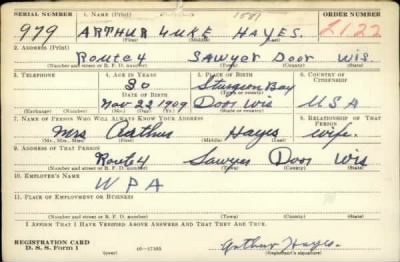 SERIAL NUMBER 1. NAME (Print) ORDER NUMBER
979 ARTHUR LUKE HAYES. 2122
(First) (Middle) (Last)
2. ADDRESS (Print)
Route 4 Sawyer Door Wis.
(Number and street or R. F. D. number) (Town) (County) (State)
3. TELEPHONE 4. AGE IN YEARS 5. PLACE OF BIRTH 6. COUNTRY OF CITIZENSHIP
30 Sturgeon Bay
DATE OF BIRTH (Town or county)
Nov 22 1909 Door Wis USA
(Exchange) (Number) (Mo.) (Day) (Yr.) (State or country)
7. NAME OF PERSON WHO WILL ALWAYS KNOW YOUR ADDRESS 8. RELATIONSHIP OF THAT PERSON
Mrs Arthur Hayes wife.
(Mr., Mrs., Miss) (First) (Middle) (Last)
9. ADDRESS OF THAT PERSON
Route 4 Sawyer Door Wis
(Number and street or R. F. D. number) (Town) (County) (State)
10. EMPLOYER'S NAME
WPA
11. PLACE OF EMPLOYMENT OR BUSINESS
(Number and street or R. F. D. number) (Town) (County) (State)
I AFFIRM THAT I HAVE VERIFIED ABOVE ANSWERS AND THAT THEY ARE TRUE.
REGISTRATION CARD
D. S. S. Form 1 16-17105 Arthur Hayes.
(Registrant's signature)